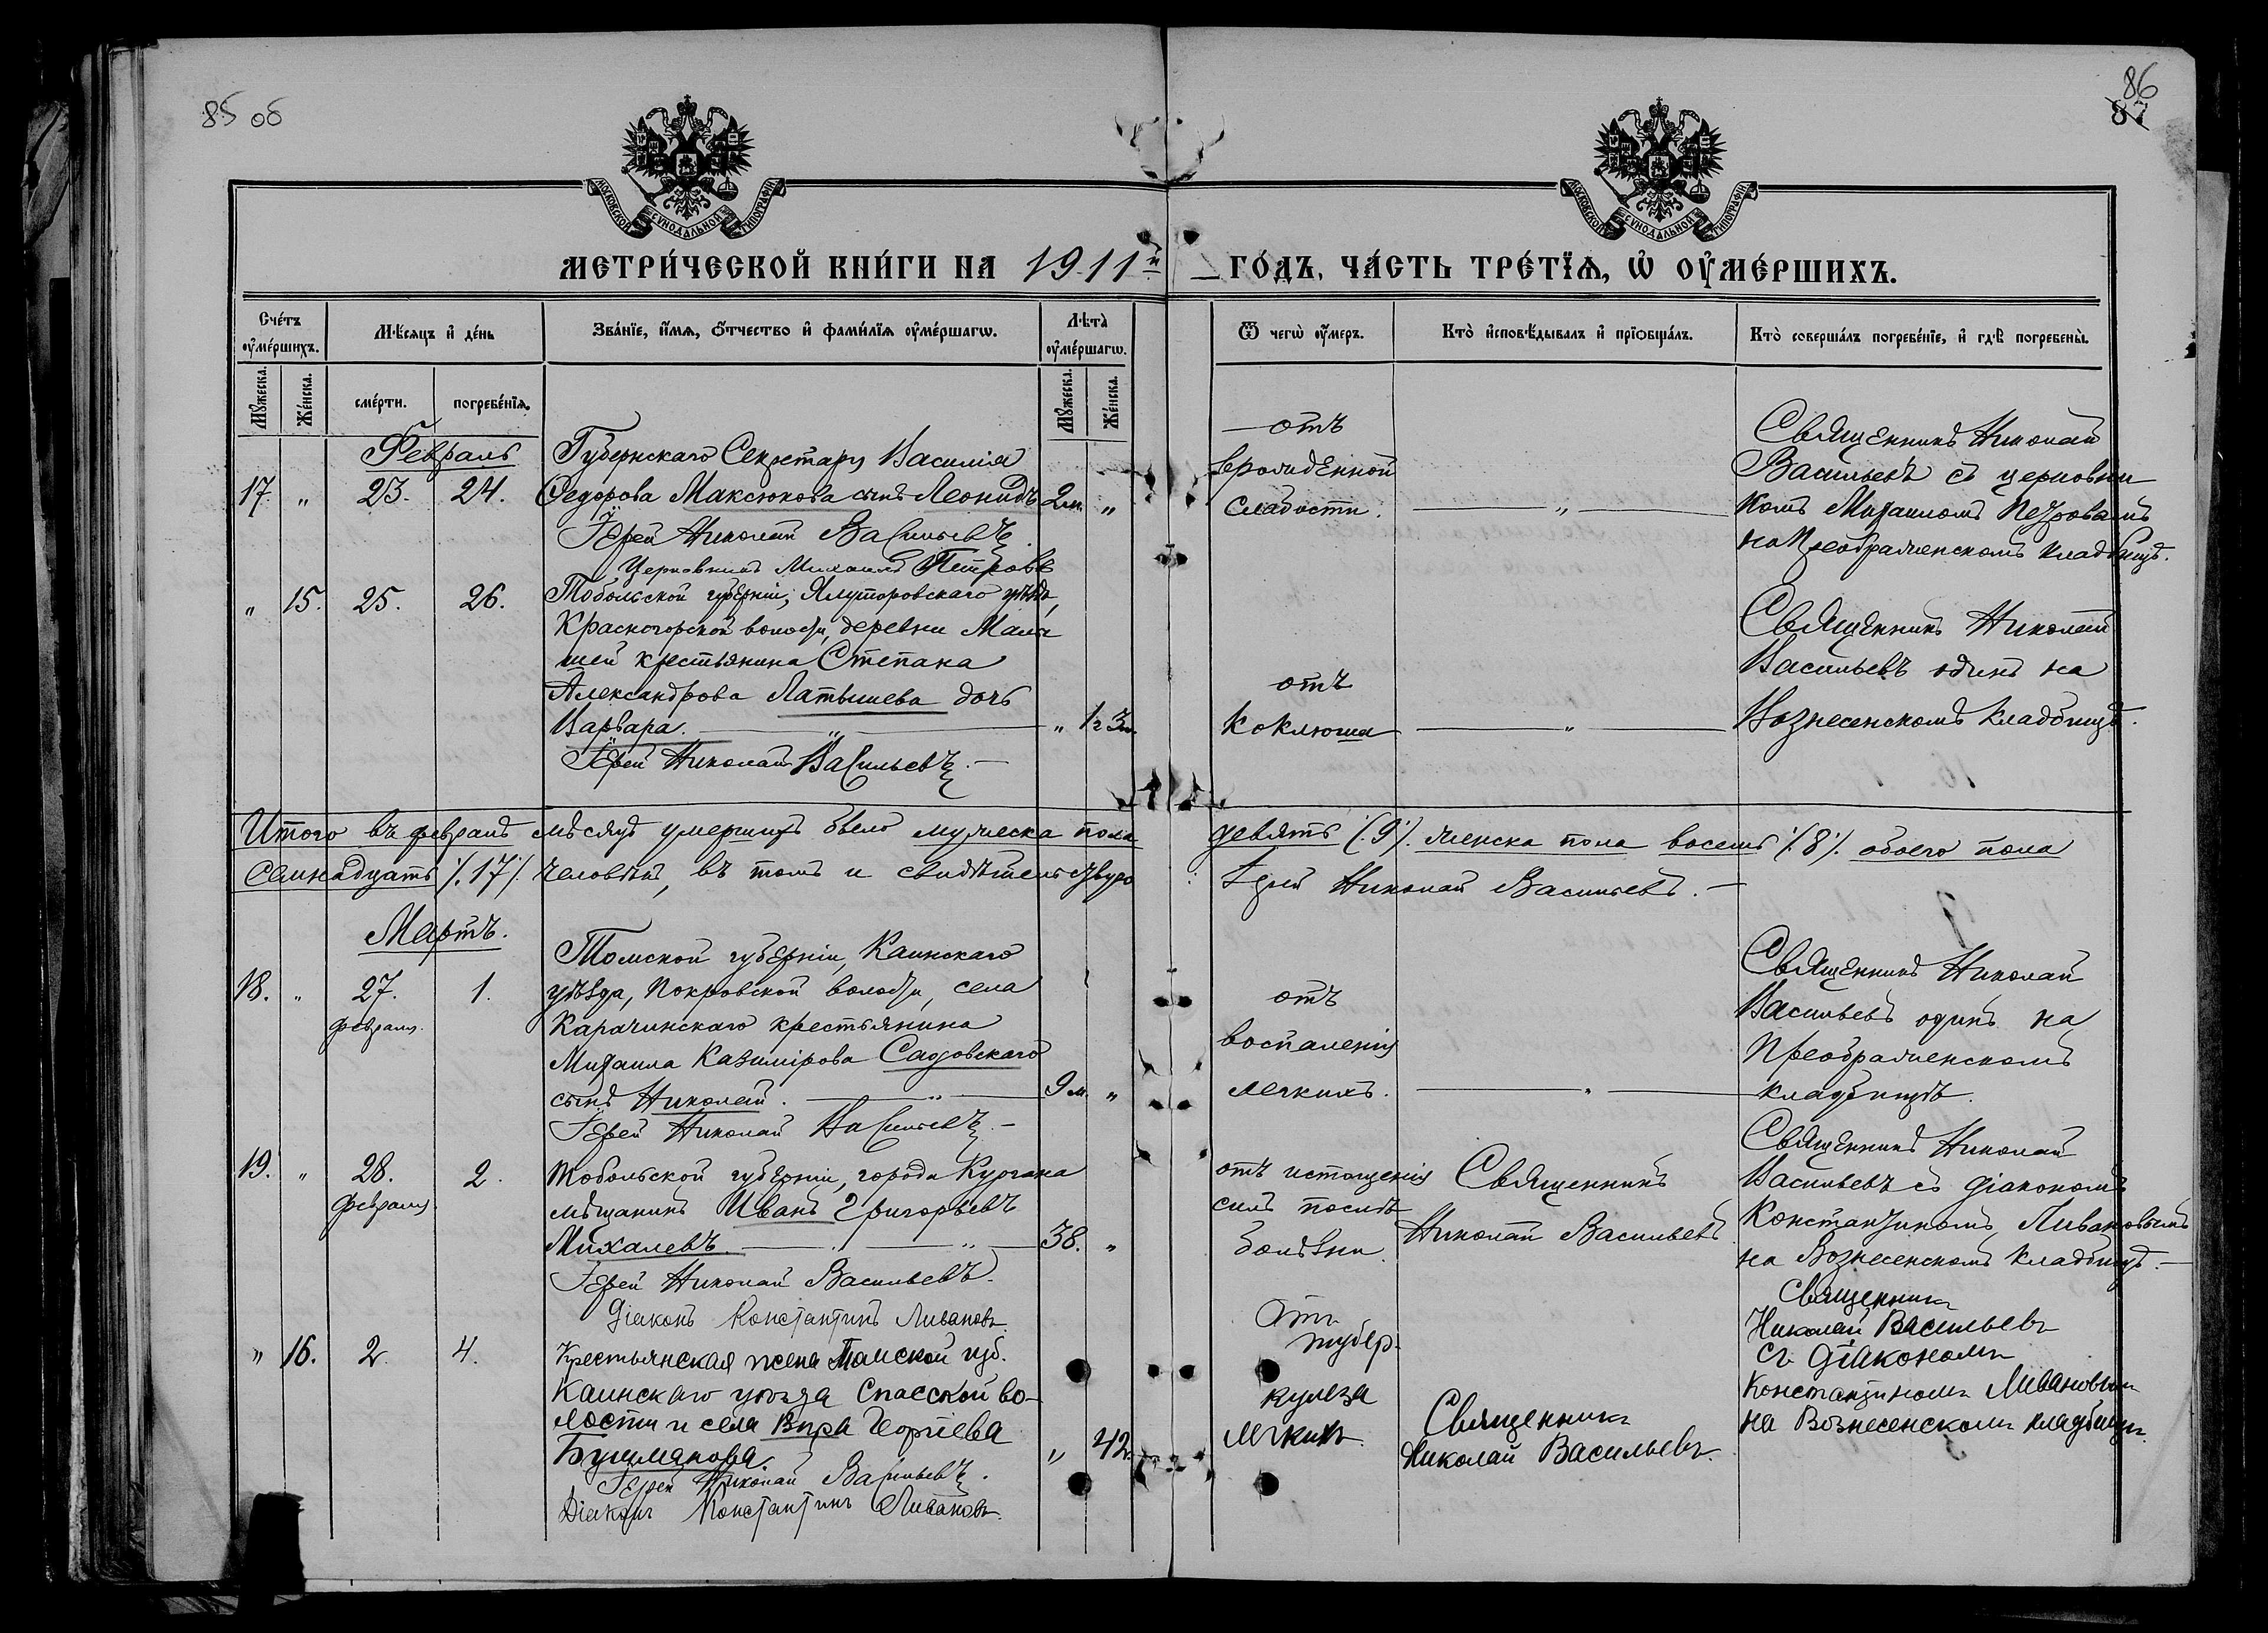 85 об
86
87
МОСКОВСКОЙ СУНОДАЛЬНОЙ ТИПОГРАФІИ
МОСКОВСКОЙ СУНОДАЛЬНОЙ ТИПОГРАФІИ
МЕТРИ́ЧЕСКОЙ КНИ́ГИ НА 1911й ГО́ДЪ, ЧА́СТЬ ТРЕ́ТЇѦ, Ѡ҆ ОУ҆МЕ́РШИХЪ.
Сче́тъ оу҆ме́ршихъ.
Мѣ́сяцъ и҆ де́нь
Зва́нїе, и҆́мѧ, ѻ҆́тчество и҆ фами́лїѧ оу҆ме́ршагѡ.
Лѣ́та̀ оу҆ме́ршагѡ.
Ѿ чегѡ̀ оу҆́меръ.
Кто̀ и҆сповѣ́дывалъ и҆ прїѻбща́лъ.
Кто̀ соверша́лъ погребе́нїе, и҆ гдѣ̀ погребены̀.
Мꙋ́жеска.
Же́нска.
сме́рти.
погребе́нїѧ.
Мꙋ́жеска.
Же́нска.
Февраль
17. „ 23. 24.
Губернскаго Секретаря Василія
Федорова Максюкова сынъ Леонидъ 2м. „
Іерей Николай Васильевъ.
Церковникъ Михаилъ Петровъ
отъ
врожденной
слабости. „
Священникъ Николай
Васильевъ съ церковни
комъ Михаиломъ Петровымъ
на Преображенскомъ кладбищѣ.
„ 15. 25. 26.
Тобольской губерніи, Ялуторовскаго уѣзда,
Красногорской волости, деревни
шей крестьянина Степана
Александрова Латышева дочь
Варвара. „ „ 1г 3м.
Іерей Николай Васильевъ. —
отъ
коклюша „
Священникъ Николай
Васильевъ одинъ на
Вознесенскомъ кладбищѣ.
Итого въ февралѣ мѣсяцѣ умершихъ было мужеска пола девять (:9:). женска пола восемь (:8:). обоего пола
семнадцать (:17:). человѣкъ, въ томъ и свидѣтельствую Іерей Николай Васильевъ. —
Мартъ.
18. „ 27. 1.
февраля.
Томской губерніи, Каинскаго
уѣзда, Покровской волости, села
Карачинскаго крестьянина
Михаила Казимірова Садовскаго
сынъ Николай. „ 9 м. „
Іерей Николай Васильевъ. —
отъ
воспаленія
легкихъ. „
Священникъ Николай
Васильевъ одинъ на
Преображенскомъ
кладбищѣ.
19. „ 28. 2.
февраля.
Тобольской губерніи, города Кургана
мѣщанинъ Иванъ Григорьевъ
Михалевъ. „ 38. „
Іерей Николай Васильевъ.
Діаконъ Константинъ Ливановъ.
отъ истощенія
силъ послѣ
болѣзни
Священникъ
Николай Васильевъ
Священникъ Николай
Васильевъ съ діакономъ
Константиномъ Ливановымъ
на Вознесенскомъ кладбищѣ. —
„ 16. 2. 4.
Крестьянская жена Томской губ.
Каинскаго уѣзда Спасской во-
лости и села Вѣра Георгіева
Бушманова. „ 42.
Іерей Николай Васильевъ.
Діаконъ Константинъ Ливановъ.
Отъ
тубер-
кулеза
легкихъ
Священникъ
Николай Васильевъ.
Священникъ
Николай Васильевъ
съ діакономъ
Константиномъ Ливановымъ
на Вознесенскомъ кладбищѣ.